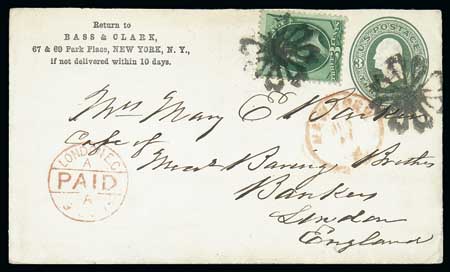 Return to
BASS & CLARK,
67 & 69 Park Place, NEW YORK, N. Y.,
if not delivered within 10 days.
U.S. POSTAGE
3
Mrs Mary E Barker
Care of
Messrs Baring Brothers
Bankers
London
England
LONDON E.C
A
PAID
NEW YORK